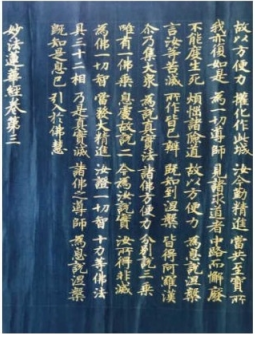 故以方便力 權化作此城 汝今勤精進 當共至寶所
我亦復如是 為一切導師 見諸求道者 中路而懈廢
不能度生死 煩惱諸險道 故以方便力 為息說涅槃
言汝等苦滅 所作皆已辦 既知到涅槃 皆得阿羅漢
尒乃集大衆 為說真實法 諸佛方便力 分別說三乘
唯有一佛乘 息處故說二 今為汝說實 汝所得非滅
為佛一切智 當發大精進 汝證一切智 十力等佛法
具三十二相 乃是真實滅 諸佛之導師 為息說涅槃
既知是息已 引入於佛慧
妙法蓮華經卷第三